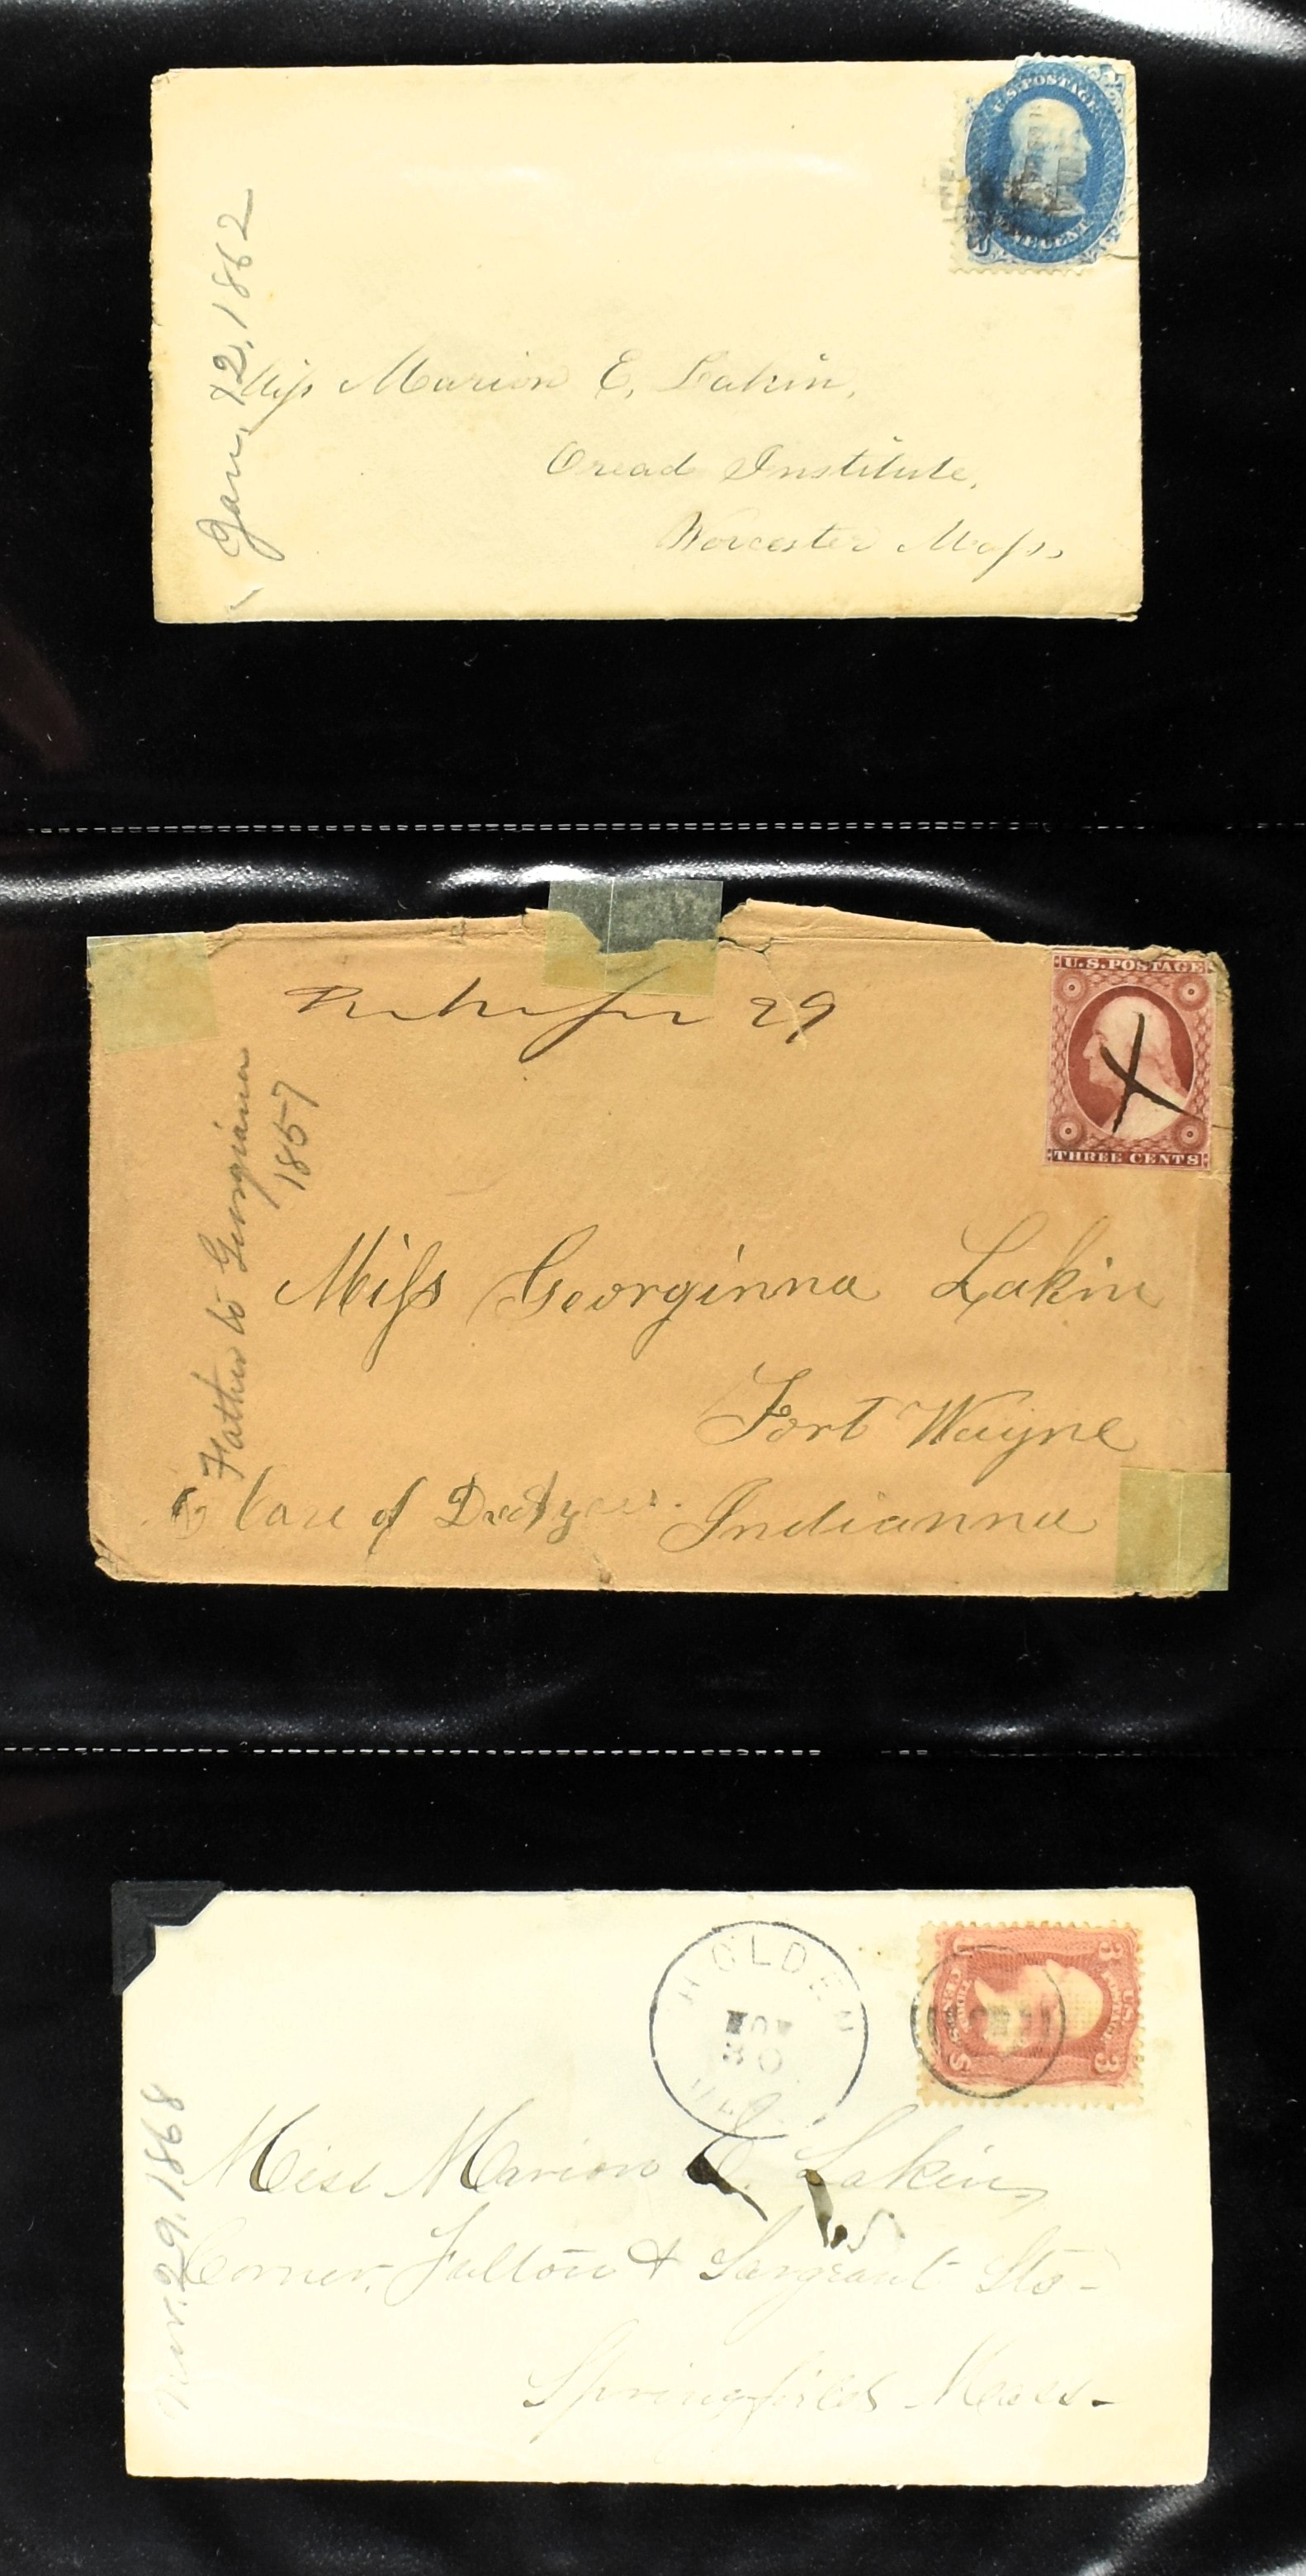 U.S. POSTAGE
ONE CENT
Jan. 12, 1862
Miss Marion E. Lakin,
Oread Institute,
Worcester Mass,
29
U.S. POSTAGE
THREE CENTS
Father to Georgianna
1857
Miss Georginna Lakin
Fort Wayne
Care of
Indianna
HOLDEN
NOV
30
3
3
Nov. 29, 1868
Miss Marion E. Lakin,
Corner, Fulton & Sargeant Sts-
Springfield Mass-